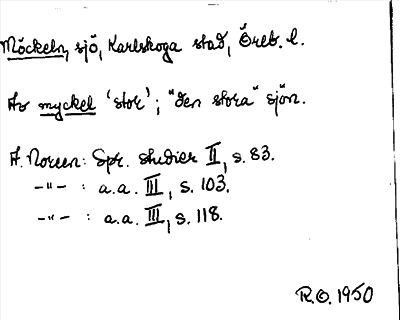 Möckeln, sjö, Karlskoga stad, Öreb. l.
Av myckel 'stor'; "den stora" sjön.
A. Noreen: Spr. studier II, s. 83.
-"- : a.a. III, s. 103.
-"- : a.a. III, s. 118.
R.O. 1950